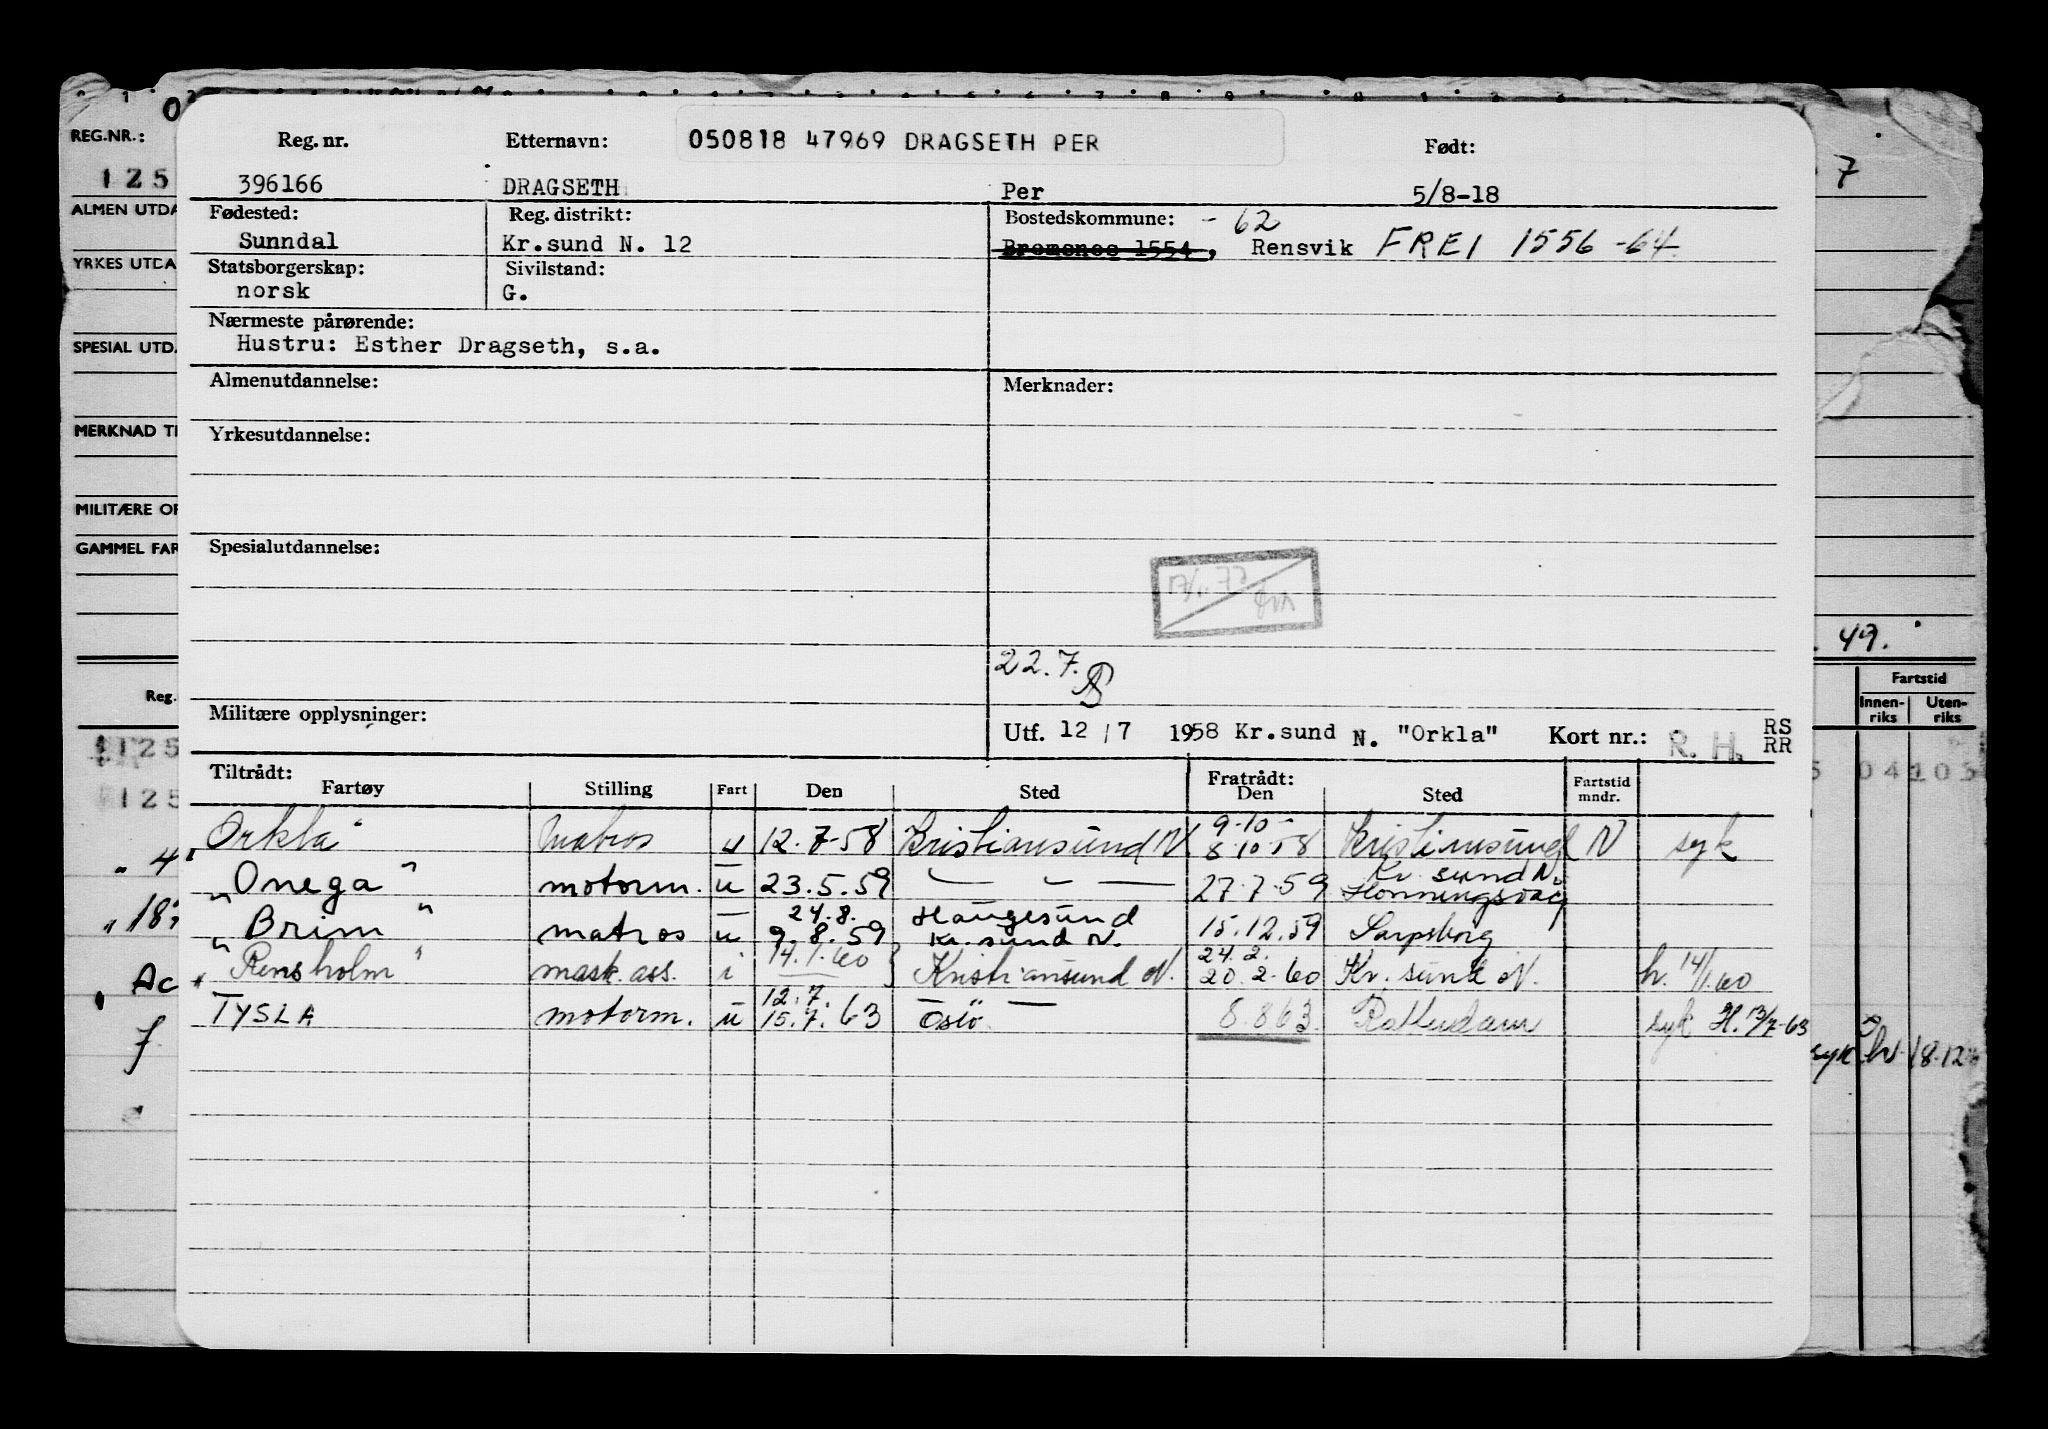 REG.NR.:
125
ALMEN UTDA
YRKES UTDA
SPESIAL UTD.
MERKNAD TI
MILITÆRE OP
GAMMEL FAR
Reg.
125
125
Reg. nr. Etternavn: 050818 47969 DRAGSETH PER Født:
396166 DRAGSETH Per 5/8-18
Fødested: Reg. distrikt: Bostedskommune: - 62
Sunndal Kr.sund N. 12 Bremsnes 1554, Rensvik FREI 1556 -64
Statsborgerskap: Sivilstand:
norsk G.
Nærmeste pårørende:
Hustru: Esther Dragseth, s.a.
Almenutdannelse: Merknader:
Yrkesutdannelse:
Spesialutdannelse:
22.7.
Militære opplysninger: Utf. 12/7 1958 Kr.sund N. "Orkla" Kort nr.: R. H. RS RR
Tiltrådt: Fratrådt:
Fartøy Stilling Fart Den Sted Den Sted Fartstid mndr.
"Orkla" matros u 12.7-58 Kristiansund N 9-10- 8-10-58 Kristiansund N syk
"Onega" motorm. u 23.5.59 — — — 27.7.59 Kr. sund N. Honningsvåg
"Brim" matros u 24.8. 9.8.59 Haugesund Kr. sund N. 15.12.59 Sarpsborg
"Rensholm" mask. ass. i 14.1.60 Kristiansund N. 24.2. 20.2.60 Kr. sund N. h. 14/1.60
TYSLA motorm. u 12.7. 15.7.63 Oslo 8.863 Rotterdam syk H. 13/7-63
7
49.
Fartstid
Innen-riks Uten-riks
syk
18.12